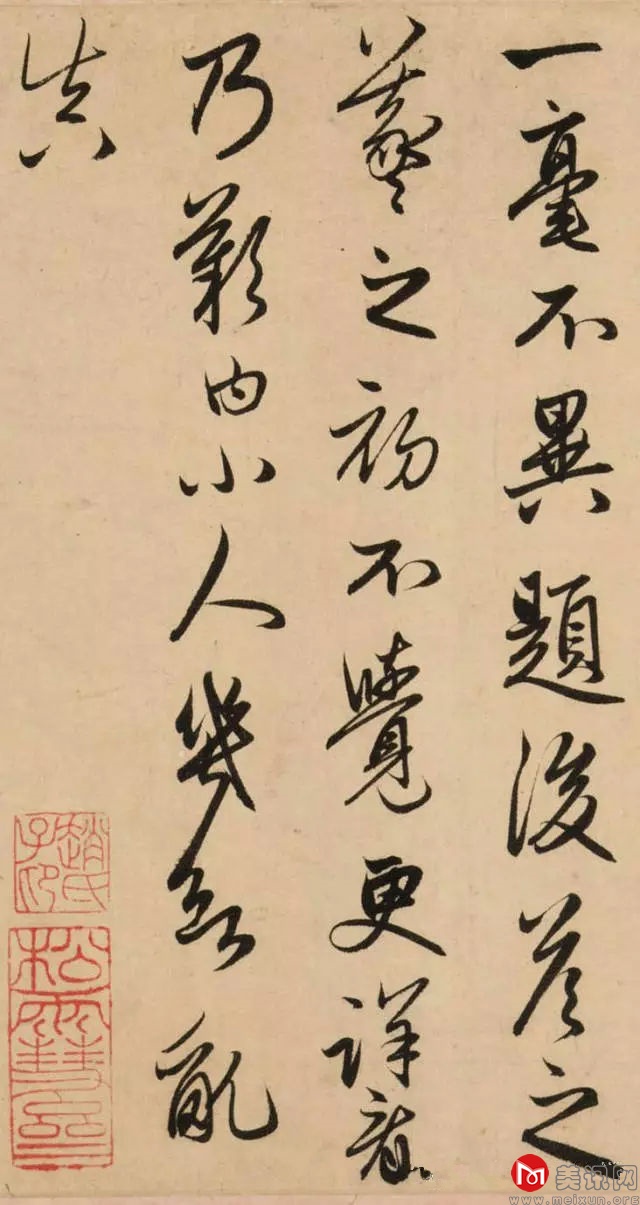 一毫不異題後答之
羲之初不覺更詳看
乃歎曰小人幾欲亂
真
趙氏子昂
松雪齋
美讯网
www.meixun.org